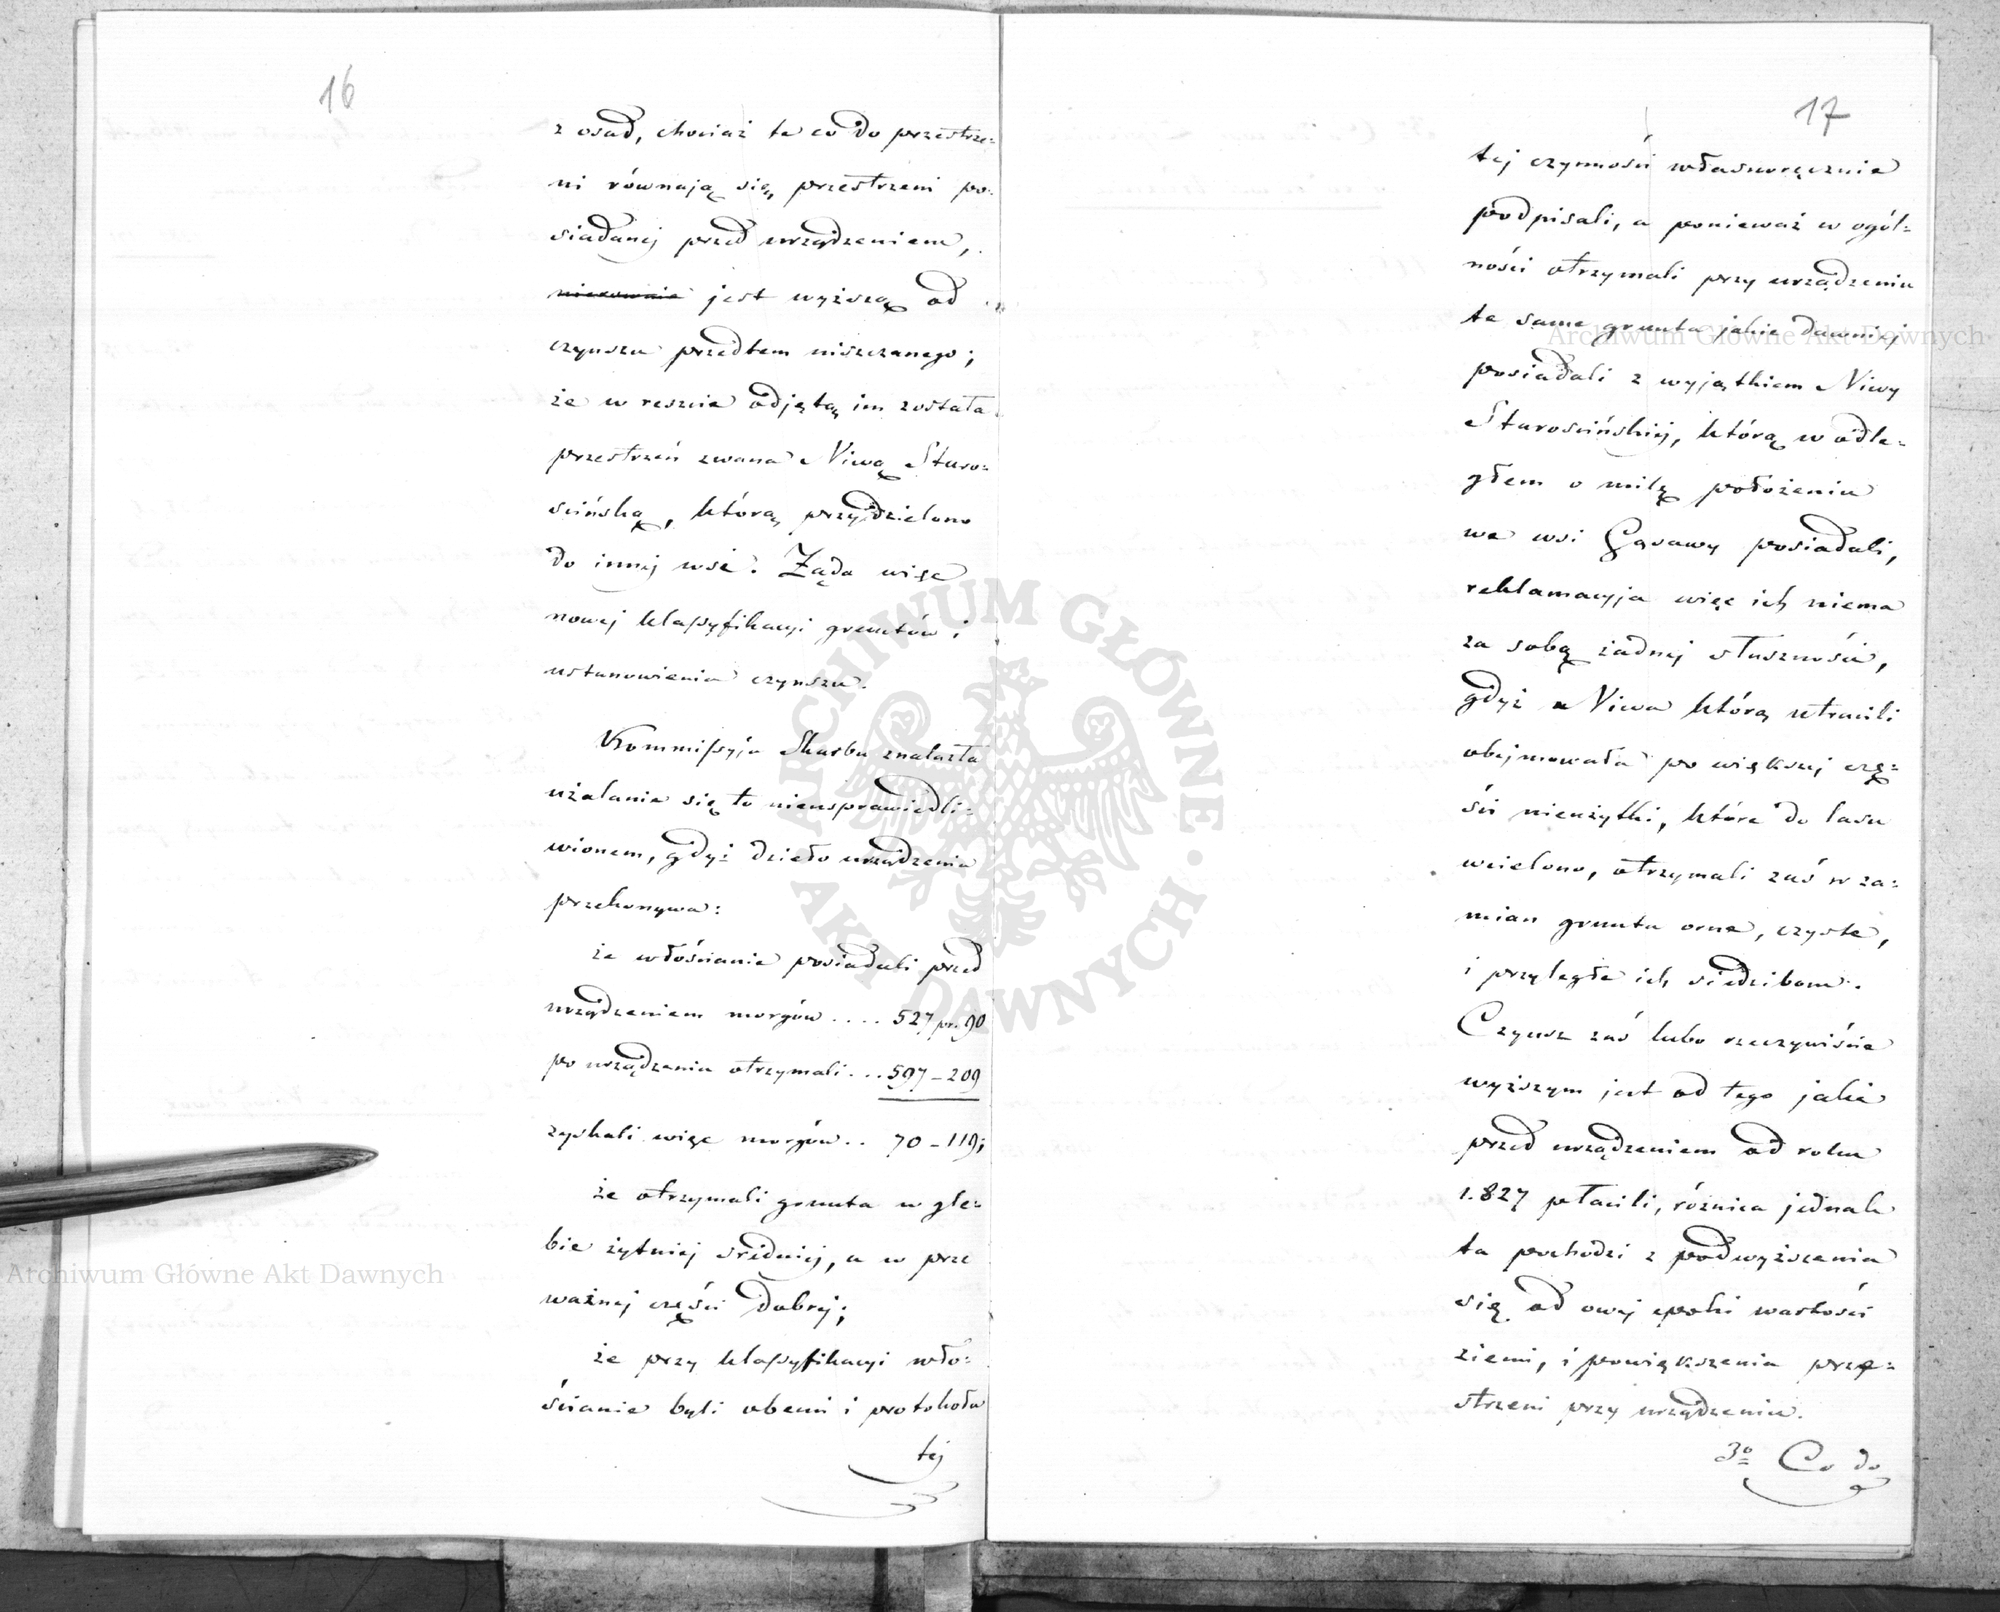 16
z osad, chociaż ta co do przestrze=
ni równają się, przestrzeni po=
siadanej przed urządzeniem,
nierownie jest wyższą od
czynszu przedtem uiszczanego;
że w resznie odjętą im została
przestrzeń zwana Niwą Staro=
ścińską, którą przydzielono
do innej wsi. Żąda więc
nowej klassyfikacyi gruntów i
ustanowienia czynszu.
Kommissyja Skarbu znalazła
użalanie się to nieusprawiedli=
wionem, gdyż dzieło urządzenia
przekonywa:
że włościanie posiadali przed
urządzeniem morgów .... 527 pr. 90
po urządzeniu otrzymali ... 597 – 209
zyskali więc morgów .. 70 – 119;
że otrzymali grunta w gle=
bie żytniej średniej, a w prze
ważnej części dobrej;
że przy klassyfikacyi wło=
ścianie byli obecni i protokoła
tej
17
tej czynności własnoręcznie
podpisali, a ponieważ w ogól=
ności otrzymali przy urządzeniu
te same grunta jakie dawniej
posiadali z wyjątkiem Niwy
Starościńskiej, którą w odle=
głem o milę położeniu
we wsi Gąsawy posiadali,
reklamacyja więc ich niema
za sobą żadnej słuszności,
gdyż Niwa którą utracili
obejmowała po większej czę=
ści nieużytki, które do lasu
wcielono, otrzymali zaś w za=
mian grunta orne, czyste,
i przyległe ich siedzibom.
Czynsz zaś lubo rzeczywiście
wyższym jest od tego jakie
przed urządzeniem od roku
1.827 płacili, różnica jednak
ta pochodzi z podwyższenia
się od owej epoki wartości
ziemi, i powiększenia prze=
strzeni przy urządzeniu.
3º Co do
ARCHIWUM GŁÓWNE AKT DAWNYCH
Archiwum Główne Akt Dawnych
Archiwum Główne Akt Dawnych